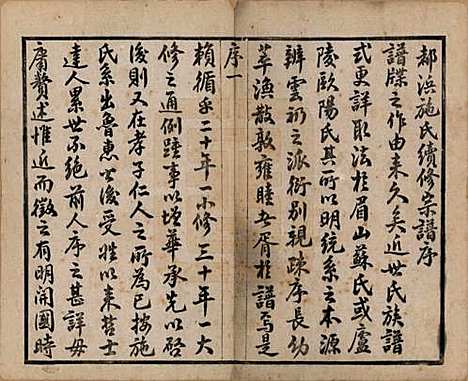 都浜施氏續修宗譜序
譜牒之作由来久矣近世氏族譜
式更詳取法於眉山蘇氏或廬
陵歐陽氏其所以明統系之本源
辨雲礽之派衍別親疎序長幼
萃渙散敦雍睦者胥於譜焉是
序一
賴循乎二十年一小修三十年一大
修之通例踵事以增華承先以啓
後則又在孝子仁人之所為已按施
氏系出魯惠公後受姓以来哲士
達人累世不絶前人序之甚詳毋
庸贅述惟近而徵之有明開國時